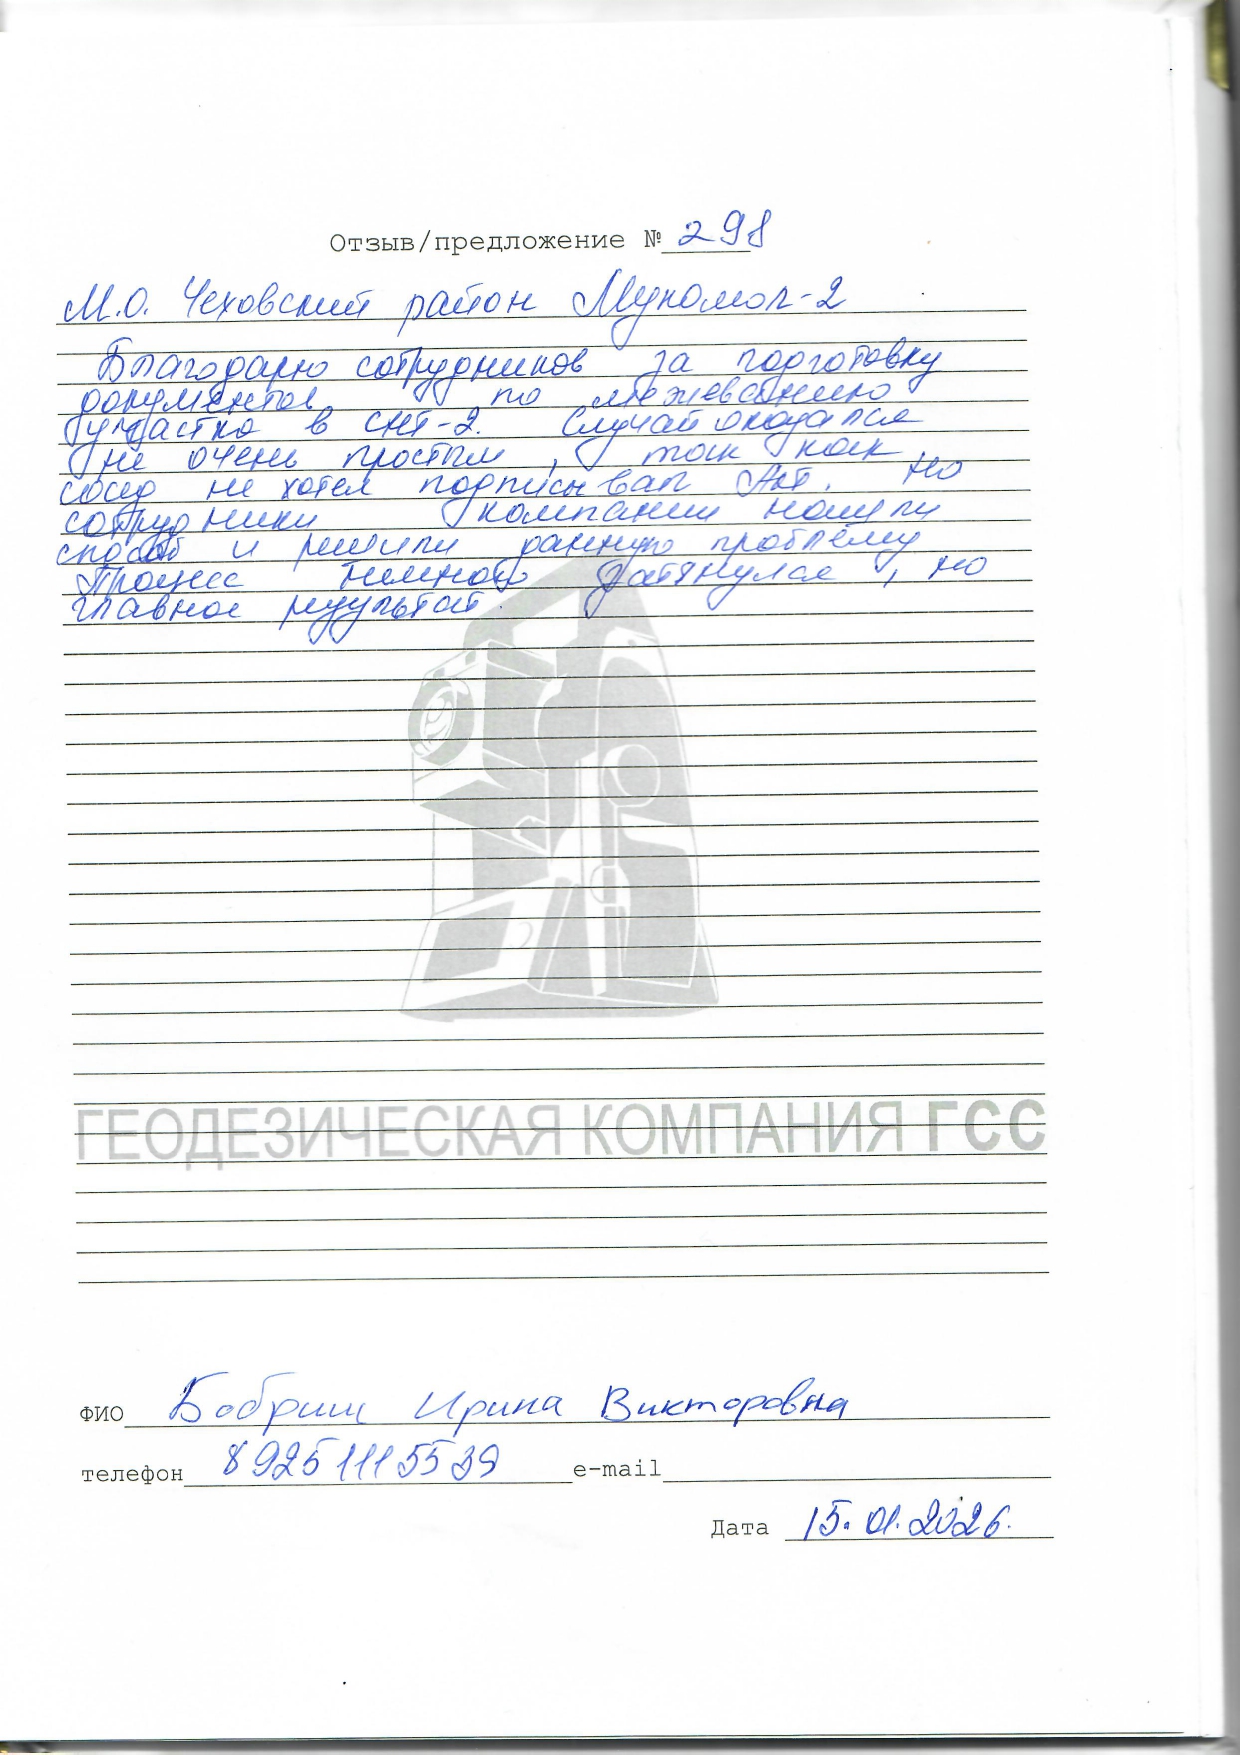 Отзыв/предложение № 298
М.О. Чеховский район Мукомол-2
Благодарю сотрудников за подготовку
документов по межеванию
участка в СНТ-2. Случай оказался
не очень простым, так как
сосед не хотел подписывал Акт. Но
сотрудники компании нашли
способ и решили данную проблему
Процесс немного затянулся, но
главное результат.
ГЕОДЕЗИЧЕСКАЯ КОМПАНИЯ ГСС
ФИО Бобриш Ирина Викторовна
телефон 89251115539 e-mail
Дата 15.01.2026.